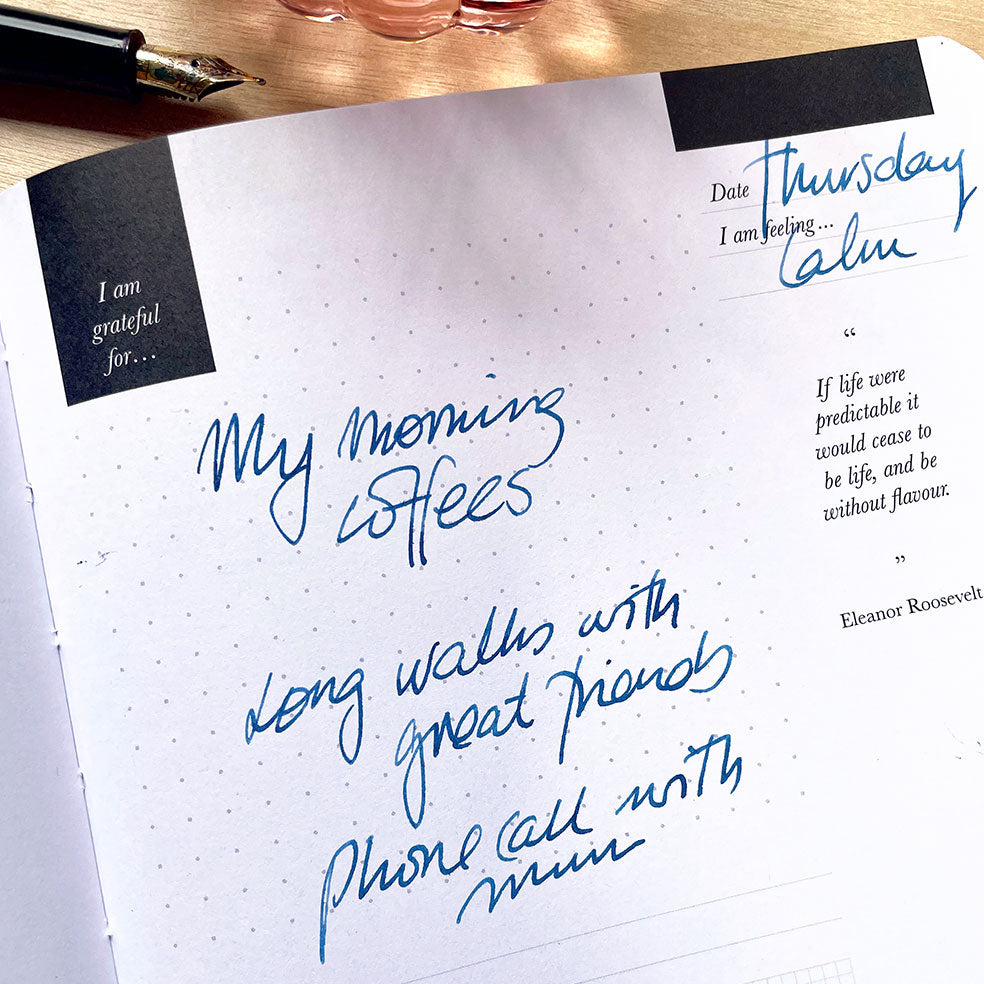 Date Thursday
I am feeling...
Calm
I am
grateful
for...
My morning
coffees
Long walks with
great friends
Phone call with
mum
“
If life were
predictable it
would cease to
be life, and be
without flavour.
”
Eleanor Roosevelt